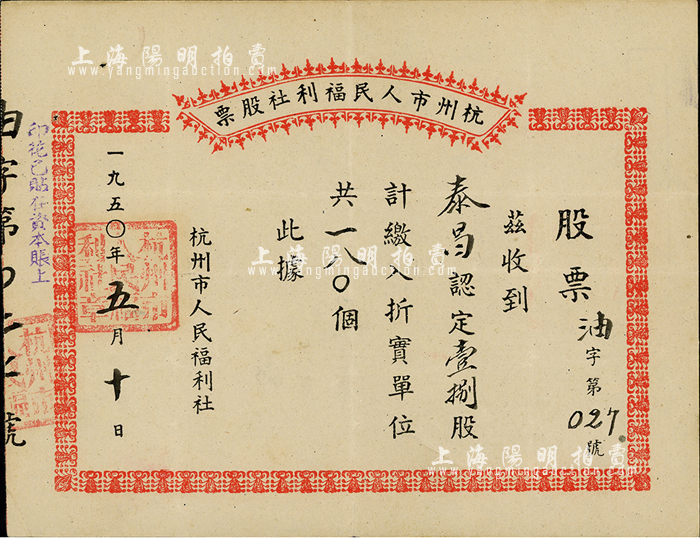 上海陽明拍賣
www.yangmingauction.com
杭州市人民福利社股票
股票
油字第027號
茲收到
泰昌認定壹捌股
計繳入折實單位
共一八〇個
此據
杭州市人民福利社
一九五〇年五月十日
杭州市人民福利社章
印花已貼在資本賬上
由字第〇二七號
杭州
上海陽明拍賣
www.yangmingauction.com
上海陽明拍賣
www.yangmingauction.com